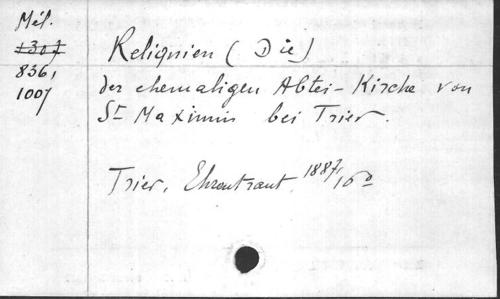 Mél.
1307
836,
1007
Reliquien (Die)
der ehemaligen Abtei-Kirche von
St Maximin bei Trier.
Trier, Ehrentraut, 1887, 16o